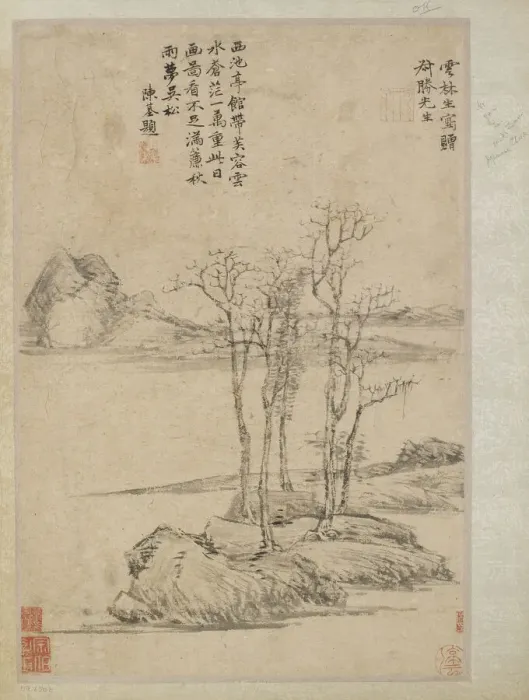 雲林生寫贈
勝先生
西池亭館帶芙容雲
水蒼茫一萬重此日
画啚看不足滿簾秋
雨夢吳松
陳基題